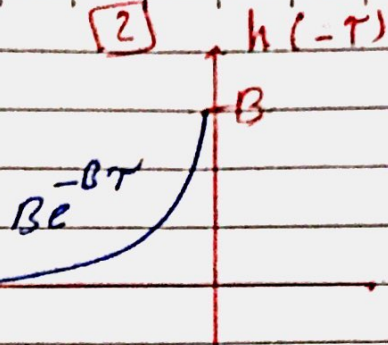 2 h(-τ)
B
Be^{-Bτ}